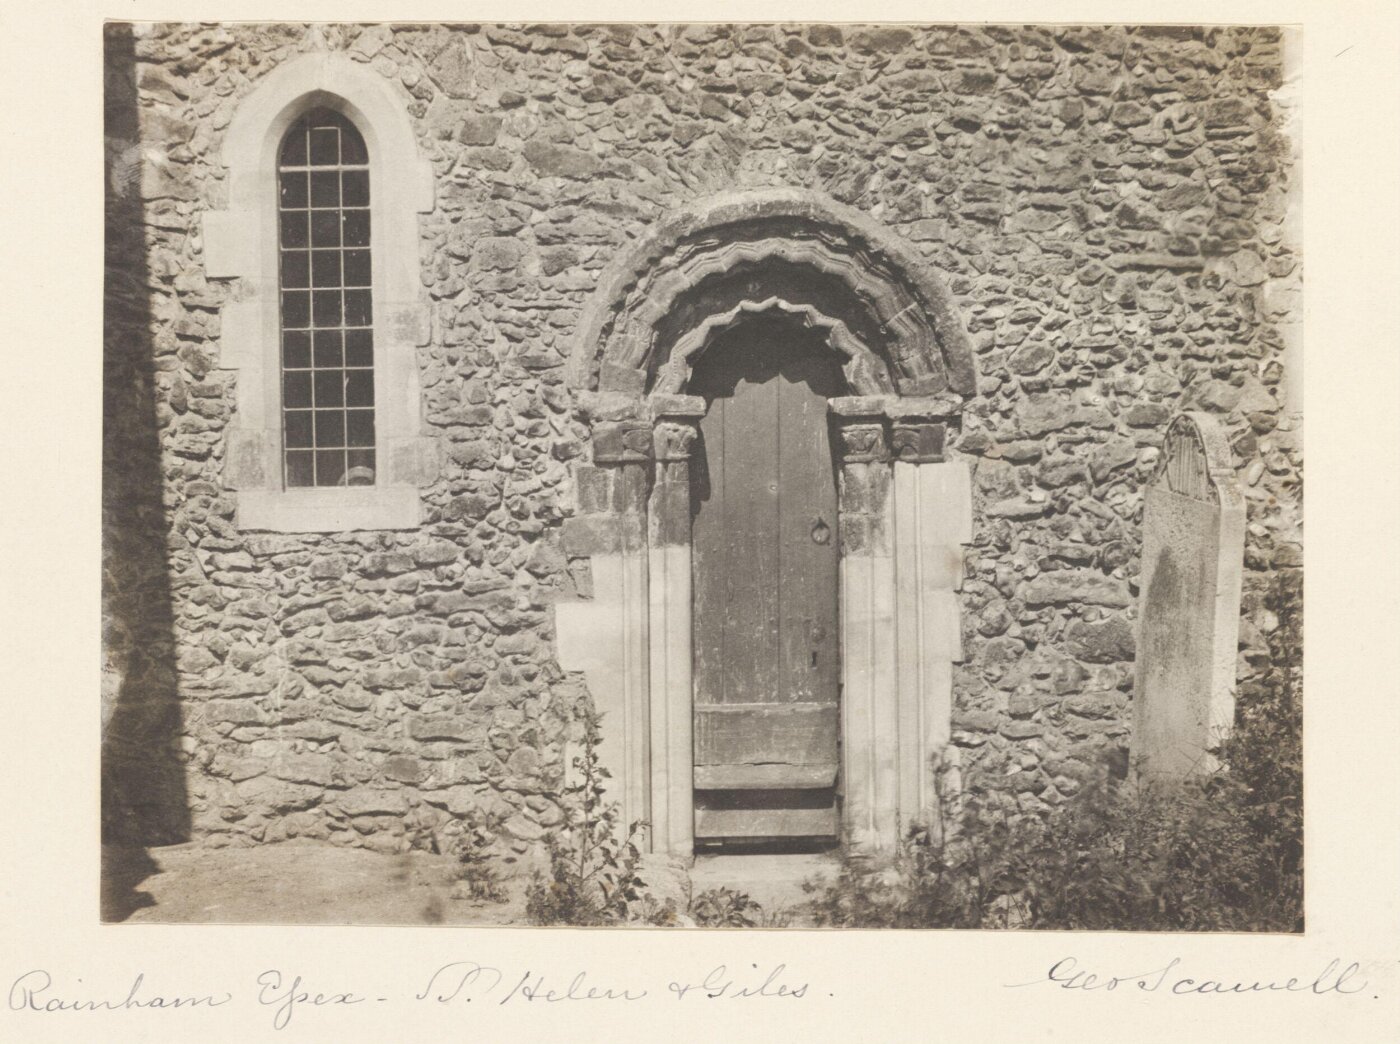 Rainham Essex - St. Helen & Giles.
Geo Scamell.